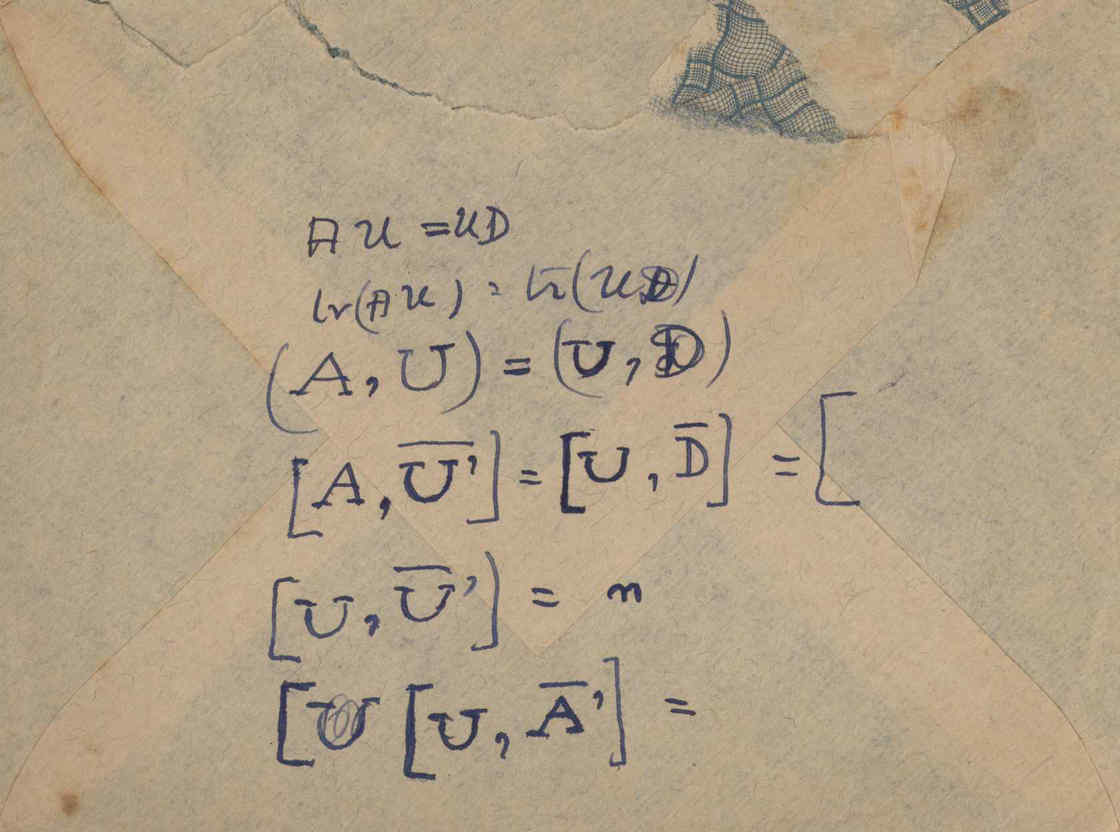 A U = UD
tr(A U) = tr(UD)
(A, U) = (U, D)
[A, U̅'] = [U, D̅] = [
[U, U̅'] = n
[U [U, A̅'] =